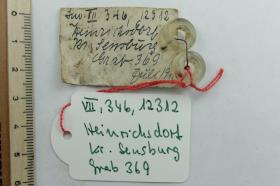 Inv. VII 346, 12312
Heinrichsdorf
Kr. Sensburg
Grab 369
VII, 346, 12312
Heinrichsdorf
Kr. Sensburg
Grab 369